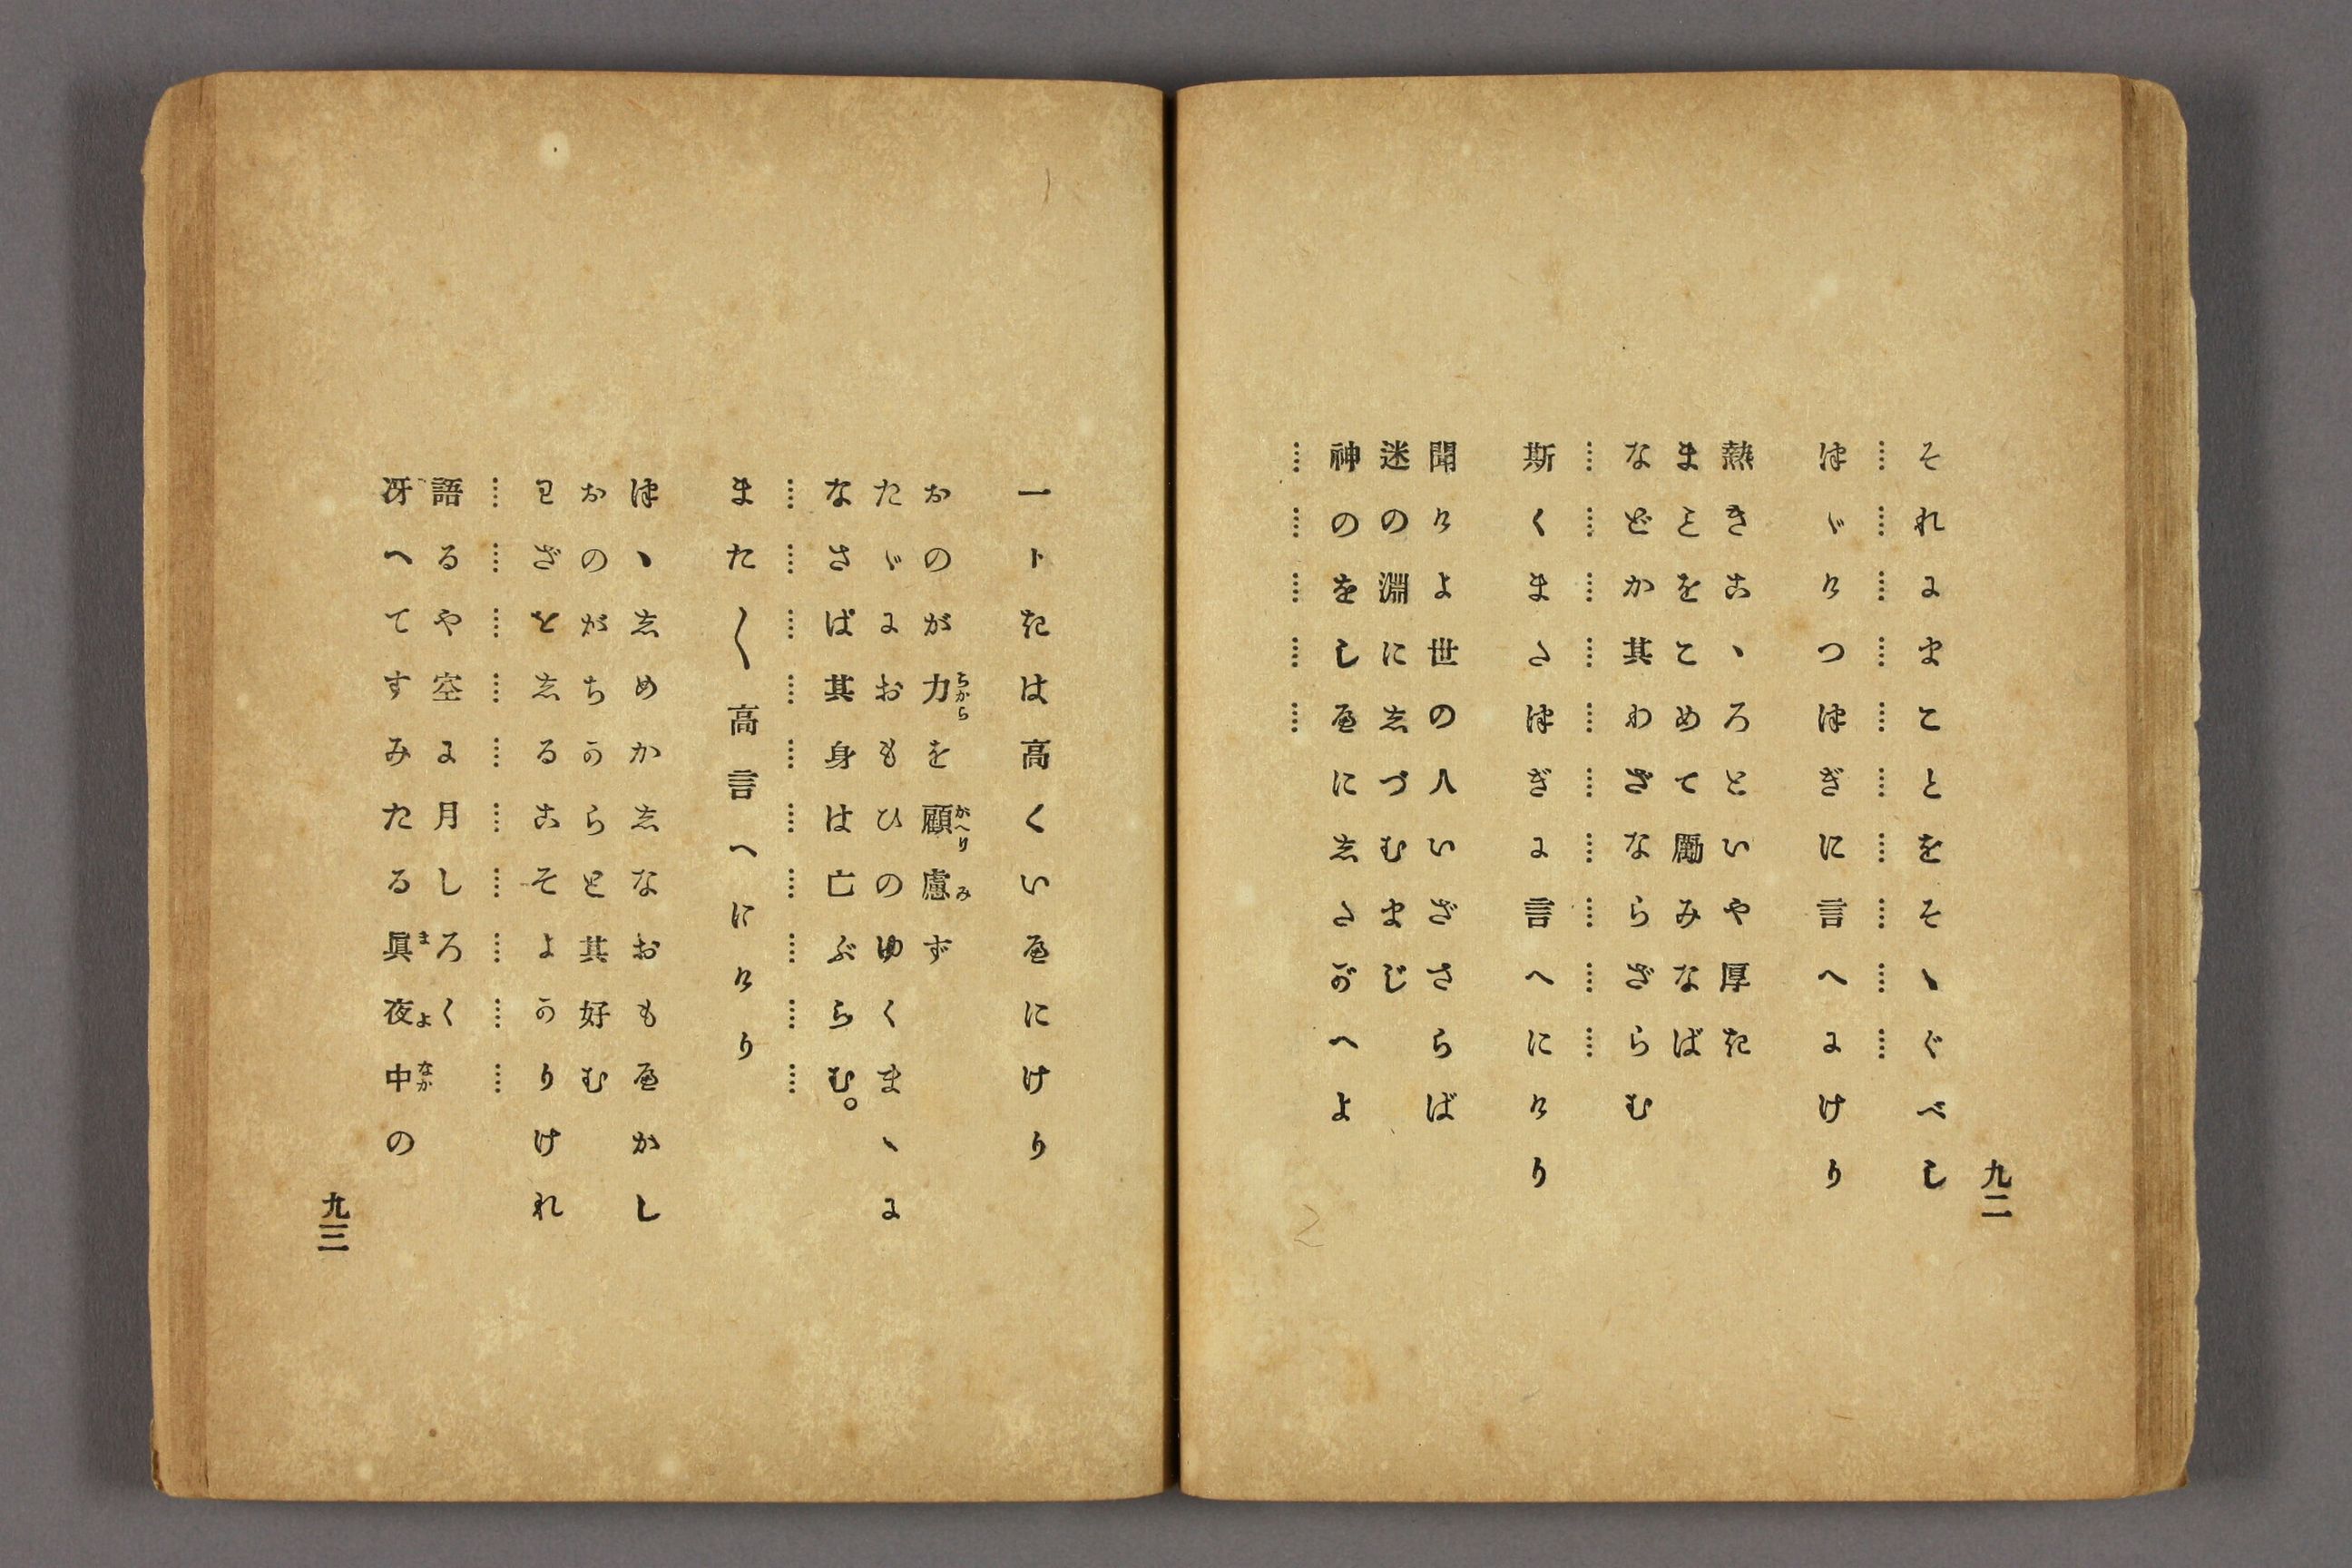 九二
それにまことをそゝぐべし
…………………………
つゞけつつぎに言へにけり
熱きこゝろといや厚き
まことをこめて勵みなば
などか其わざならざらむ
…………………………
斯くまたつぎに言へにけり
聞けよ世の人いざさらば
迷の淵にしづむまじ
神のをしへにしたがへよ
……………
一トきは高くいへにけり
おのが力ちからを顧慮かへりみず
たゞにおもひのゆくまゝに
なさば其身は亡ぶらむ。
…………………………
また〳〵高言へにけり
つゝしめかしなおもへかし
おのがちからと其好む
わざとしるこそよかりけれ
…………………………
語るや空に月しろく
冴へてすみたる眞夜中まよなかの
九三